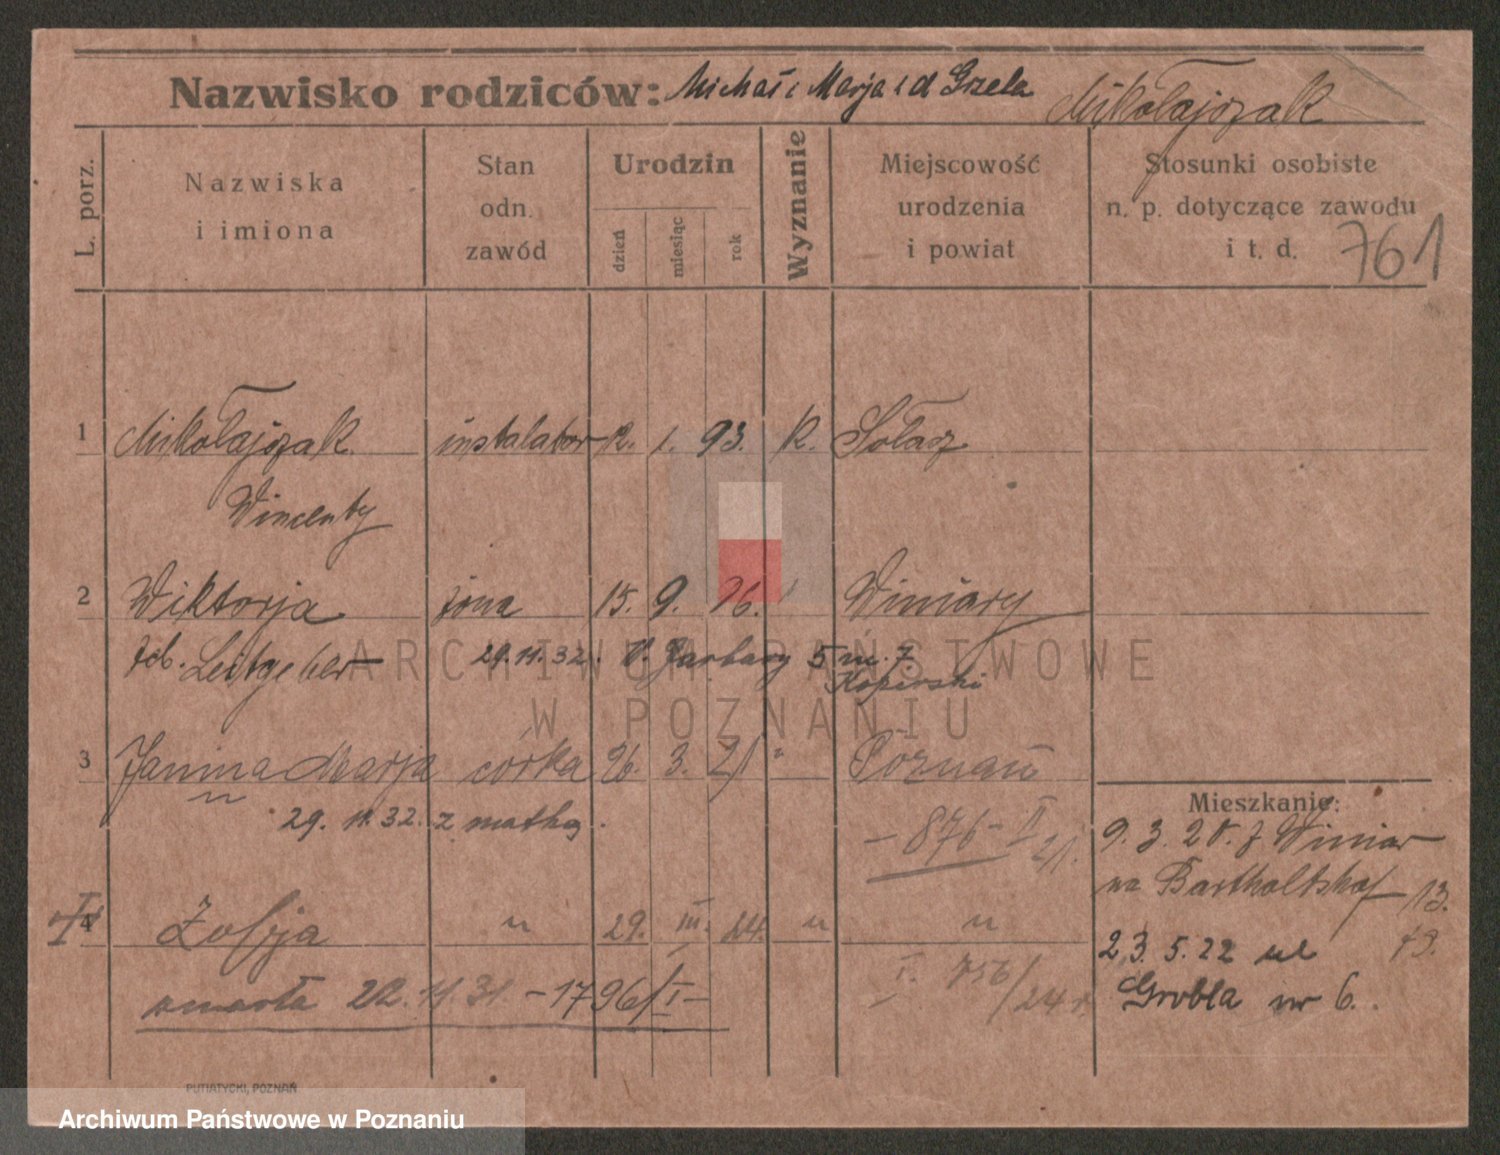 Nazwisko rodziców: Michał i Marja z d Grzela Mikołajczak
L. porz.
Nazwiska i imiona
Stan odn. zawód
Urodzin
dzień
miesiąc
rok
Wyznanie
Miejscowość urodzenia i powiat
Stosunki osobiste n. p. dotyczące zawodu i t. d.
761
1 Mikołajczak instalator 12. 1. 93. K. Sołacz
Wincenty
2 Wiktorja żona 15. 9. 96. " Winiary
Leitgeber 29.11.32. V. Garbary 5 m. 7
3 Janina Marja córka 26. 3. 21 " Poznań
29. 11. 32. z matką.
– 876 – II 21.
Mieszkanie:
9. 3. 20. z Winiar
na Bartholdshof 13.
4 Zofja " 29. III. 24. " "
23. 5. 22 ul
Grobla nr 6.
zmarła 22. 11. 31 – 1796/I –
I. 756/24 r.
PUTIATYCKI, POZNAŃ
ARCHIWUM PAŃSTWOWE
W POZNANIU
Archiwum Państwowe w Poznaniu